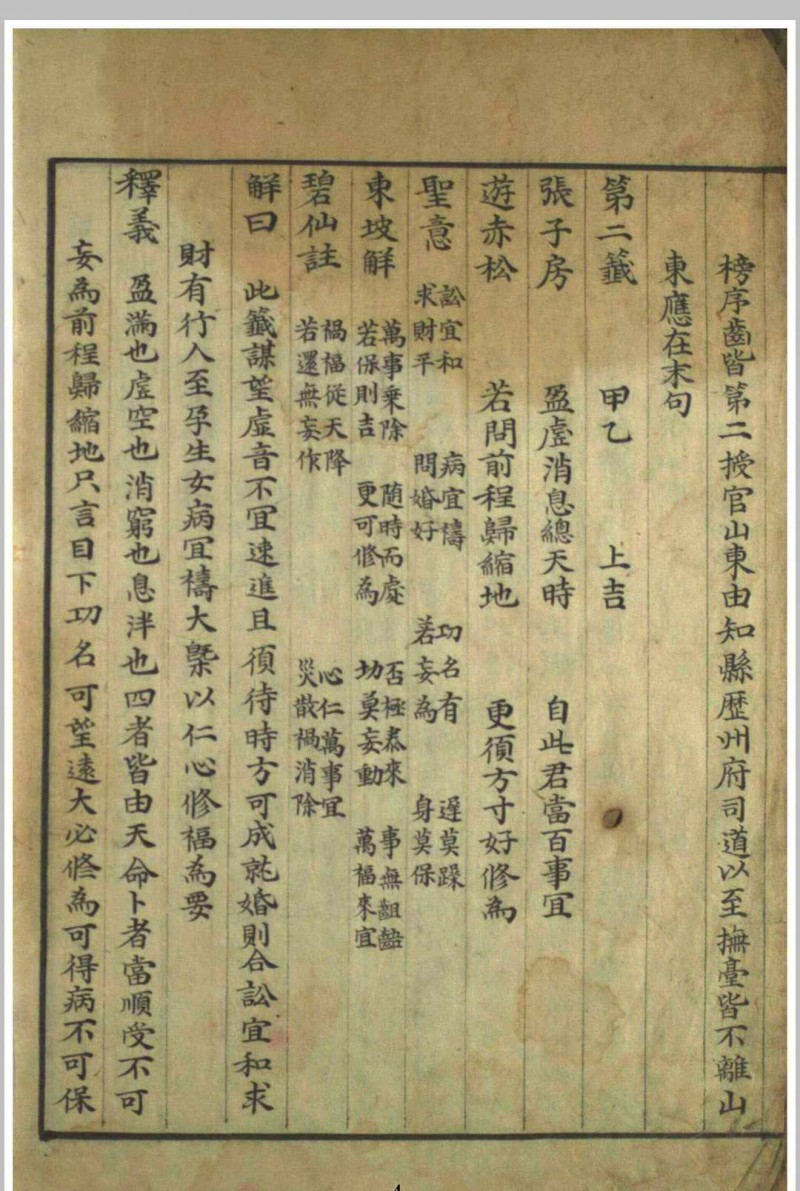 榜序齒皆第二授官山東由知縣歷州府司道以至撫臺皆不離山
東應在末句
第二籤 甲乙 上吉
張子房 盈虛消息總天時 自此君當百事宜
遊赤松 若問前程歸縮地 更須方寸好修為
聖意 訟宜和 病宜禱 功名有 遲莫躁
求財平 問婚好 若妄為 身莫保
東坡解 萬事乘除 隨時而處 否極泰來 事無齟齬
若保則吉 更可修為 切莫妄動 萬福來宜
碧仙註 禍福從天降 心仁萬事宜
若還無妄作 災散禍消除
解曰 此籤謀望虛音不宜速進且須待時方可成就婚則合訟宜和求
財有行人至孕生女病宜禱大槩以仁心修福為要
釋義 盈滿也虛空也消窮也息泮也四者皆由天命卜者當順受不可
妄為前程歸縮地只言目下功名可望遠大必修為可得病不可保
4